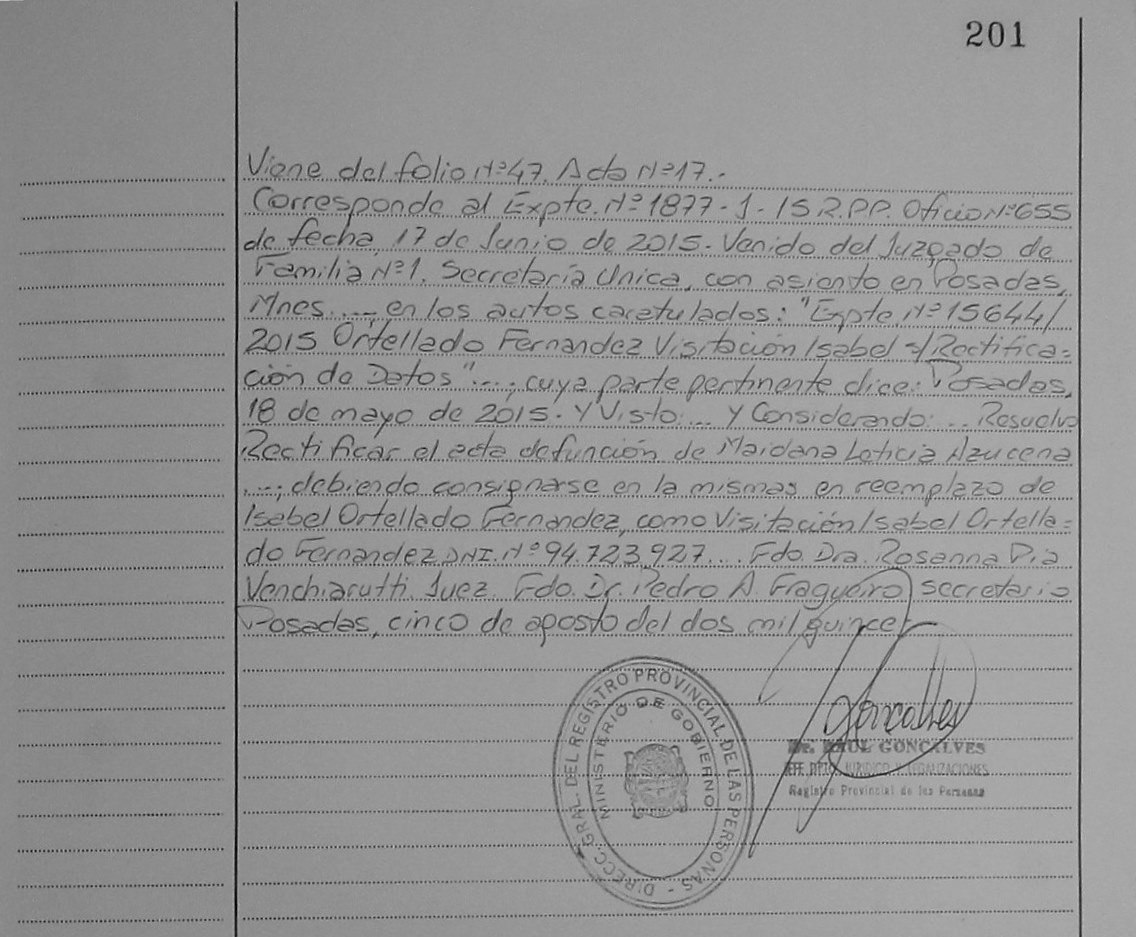 201
Viene del folio Nº47. Acta Nº17.-
Corresponde al Expte. Nº1877-J-15 R.PP. Oficio Nº655
de fecha 17 de Junio de 2015. Venido del Juzgado de
Familia Nº1. Secretaría Unica, con asiento en Posadas,
Mnes. ...., en los autos caratulados: "Expte. Nº15644/
2015 Ortellado Fernandez Visitación Isabel s/Rectifica=
ción de Datos"....; cuya parte pertinente dice: Posadas,
18 de mayo de 2015. Y Visto:... y Considerando:... Resuelvo
Rectificar el acta defunción de Maidana Leticia Azucena
....; debiendo consignarse en la mismas en reemplazo de
Isabel Ortellado Fernandez, como Visitación Isabel Ortella=
do Fernandez DNI. Nº94.723.927... Fdo. Dra. Rosanna Pia
Venchiarutti. Juez. Fdo. Dr. Pedro A. Fragueiro secretario
Posadas, cinco de agosto del dos mil quince
DIRECC. GRAL. DEL REGISTRO PROVINCIAL DE LAS PERSONAS -
MINISTERIO DE GOBIERNO
Dr. RAUL GONCALVES
JEFE DPTO. JURIDICO Y LEGALIZACIONES
Registro Provincial de las Personas